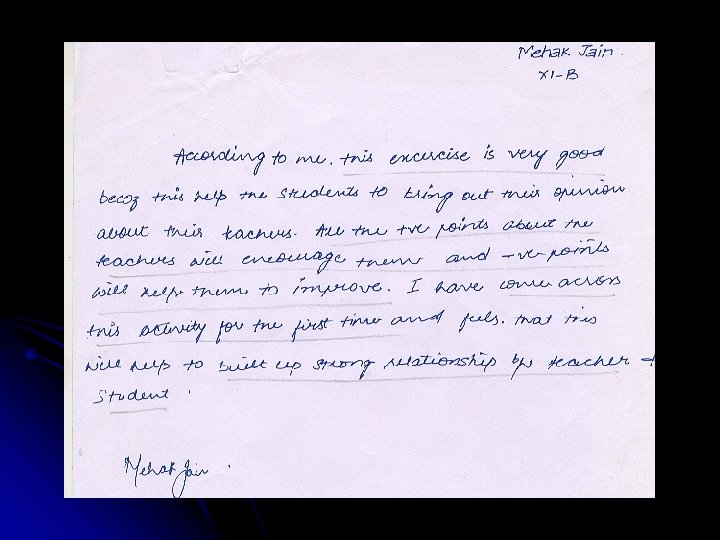 Mehak Jain.
XI-B
According to me, this excercise is very good
becoz this help the students to bring out their opinion
about their teachers. All the +ve points about the
teachers will encourage them and -ve points
will help them to improve. I have come across
this activity for the first time and feels. that this
will help to built up strong relationship b/w teacher &
student.
Mehak Jain.